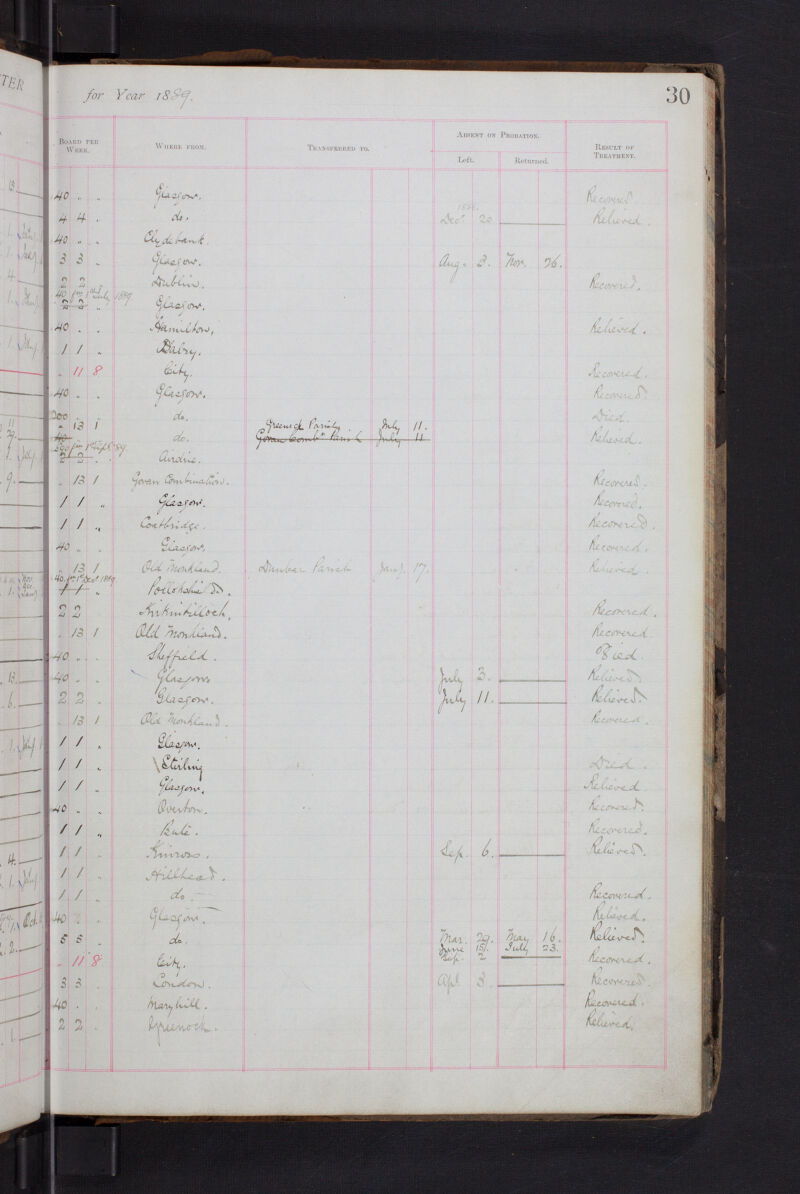 for Year 1889. 30
BOARD PER WEEK. WHERE FROM. TRANSFERRED TO. ABSENT ON PROBATION. RESULT OF TREATMENT.
Left. Returned.
40 " " Glasgow. Recovered
4 4 " do. Dec. 20 Relieved.
40 " " Clydebank.
3 3 " Glasgow. Aug. 3. Nov. 26.
2 2 Dublin. Recovered.
40 1st July 1889
2 2 " Glasgow.
40 " " Hamilton, Relieved.
1 1 " Dalry.
" 11 8 City. Recovered.
40 " " Glasgow. Recovered
" 13 1 do. Greenock Parish. July 11. Died.
40 do. Govan Combn Parish July 11 Relieved.
2 2 " Airdrie.
" 13 1 Govan Combination. Recovered.
1 1 " Glasgow. Recovered.
1 1 " Coatbridge. Recovered.
40 " " Glasgow. Recovered.
" 13 1 Old Monkland. Dunbar Parish Jany. 17. Relieved.
40 1st Decr 1889
1 1 " Pollokshields.
2 2 Kirkintilloch. Recovered.
" 13 1 Old Monkland. Recovered
40 " " Sheffield. Died.
40 " " Glasgow July 3. Relieved
2 2 " Glasgow. July 11. Relieved.
" 13 1 Old Monkland. Recovered.
1 1 " Glasgow.
1 1 " Stirling Died.
1 1 " Glasgow. Relieved
40 " " Overton. Recovered.
1 1 " Bute. Recovered.
1 1 " Kinross. Sep. 6. Relieved.
1 1 " Hillhead.
1 1 " do. Recovered.
40 " Glasgow. Relieved.
5 5 " do. Mar. 29. May 16. Relieved.
June 15. July 23.
" 11 8 City. Sep. 2 Recovered.
3 3 " London. Apl. 3. Recovered.
40 " " Maryhill. Recovered.
2 2 " Greenock. Relieved.